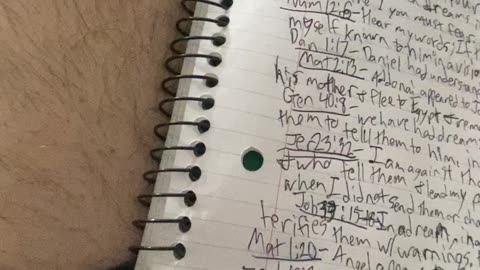 dreams
I, you must
Num 12:6- Hear my words, If
myself known to him in a visio
Dan 1:17- Daniel had understan
Mat 2:13- Adonai appeared to J
his mother & flee to Egypt & rem
Gen 40:8
them to - we have had dream
to tell them to him
Jer 23:32- I am against th
& who tell them & lead my p
when I did not send them or cha
Job 33:15-18- In a dream, in a
terifies them w/ warnings, t
Mat 1:20- Angel